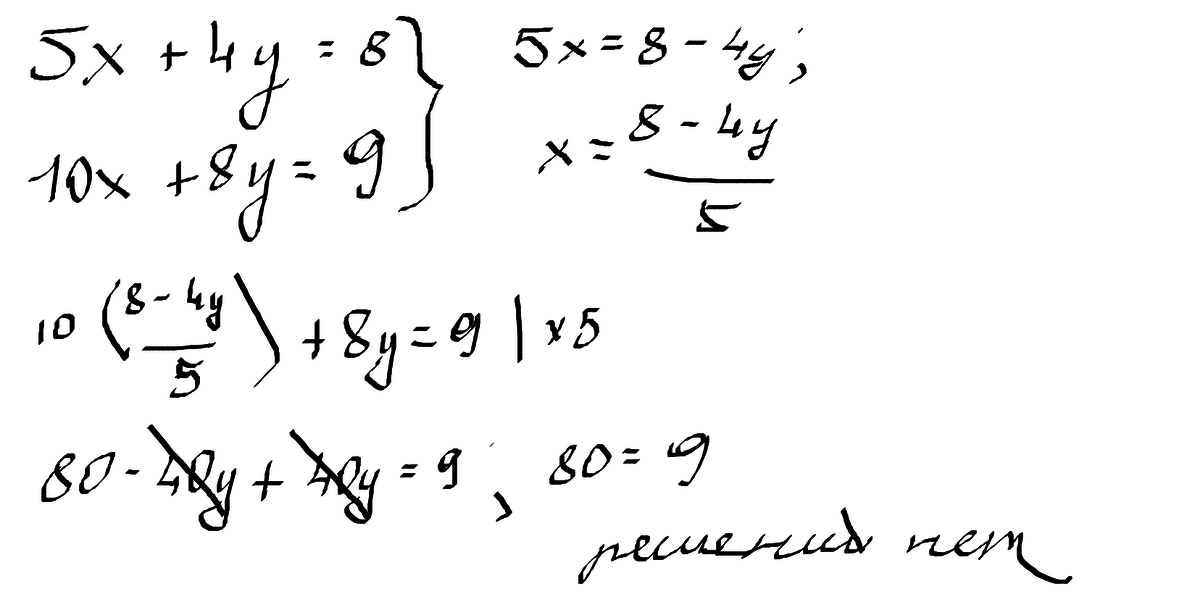 5x + 4y = 8 } 5x = 8 - 4y ;
10x + 8y = 9 } x = (8 - 4y)/5
10 ((8 - 4y)/5) + 8y = 9 | x 5
80 - 40y + 40y = 9 ; 80 = 9
решений нет